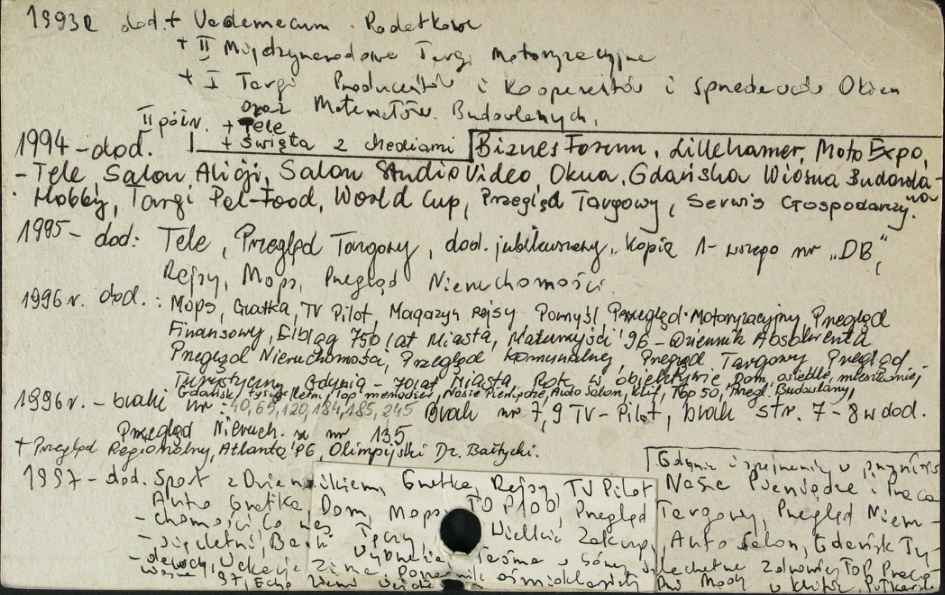 1993r dod. + Vademecum Podatkowe
+ II Międzynarodowe Targi Motoryzacyjne
+ I Targi Producentów i Kooperantów i Sprzedawców Okien
oraz Materiałów Budowlanych.
II półr. + Tele
1994 - dod. + Święta z Mediami Biznes Forum, Lillehamer, Moto Expo,
- Tele, Salon Alicji, Salon Studio Video, Okna, Gdańska Wiosna Budowla-
Hobby, Targi Pet-Food, World Cup, Przegląd Targowy, Serwis Gospodarczy.
1995 - dod: Tele, Przegląd Targowy, dod. jubileuszowy „Kopia 1-wszego nr „DB",
Rejsy, Mops, Przegląd Nieruchomości
1996 r. dod. : Mops, Gratka, TV Pilot, Magazyn Rejsy Pomysł Przegląd Motoryzacyjny Przegląd
Finansowy, Elbląg 750 lat Miasta, Maturzyści '96 - Dziennik Absolwenta
Przegląd Nieruchomości, Przegląd Komunalny, Przegląd Targowy Przegląd
Turystyczny, Gdynia - 70 lat Miasta, Rok w obiektywie Dom, osiedle, mieszkanie
Gdańsk tysiącletni, Top menedżer, Nasze Pieniądze, Auto Salon, Top 50, Przegl. Budowlany,
1996 r. - braki nr: 40, 69, 120, 184, 185, 245 Brak nr 7, 9 TV - Pilot, brak str. 7 - 8 w dod.
Przegląd Nieruch. z nr 135
+ Przegląd Regionalny, Atlanta '96, Olimpijski Dz. Bałtycki.
Gdynia i
1997 - dod. Sport z Dziennikiem, Gratka, Rejsy, TV Pilot Nasze Pieniądze i Praca
Auto Gratka, Dom, Mops, TOP 100, Przegląd Targowy, Przegląd Nieru-
- chomości Co nas Tęczy Wielkie Zakupy, Auto Salon, Gdańsk Ty-
- siącletni, Zdrowie, Top
- Wakacje, Zima
'97, Echo Ziemi